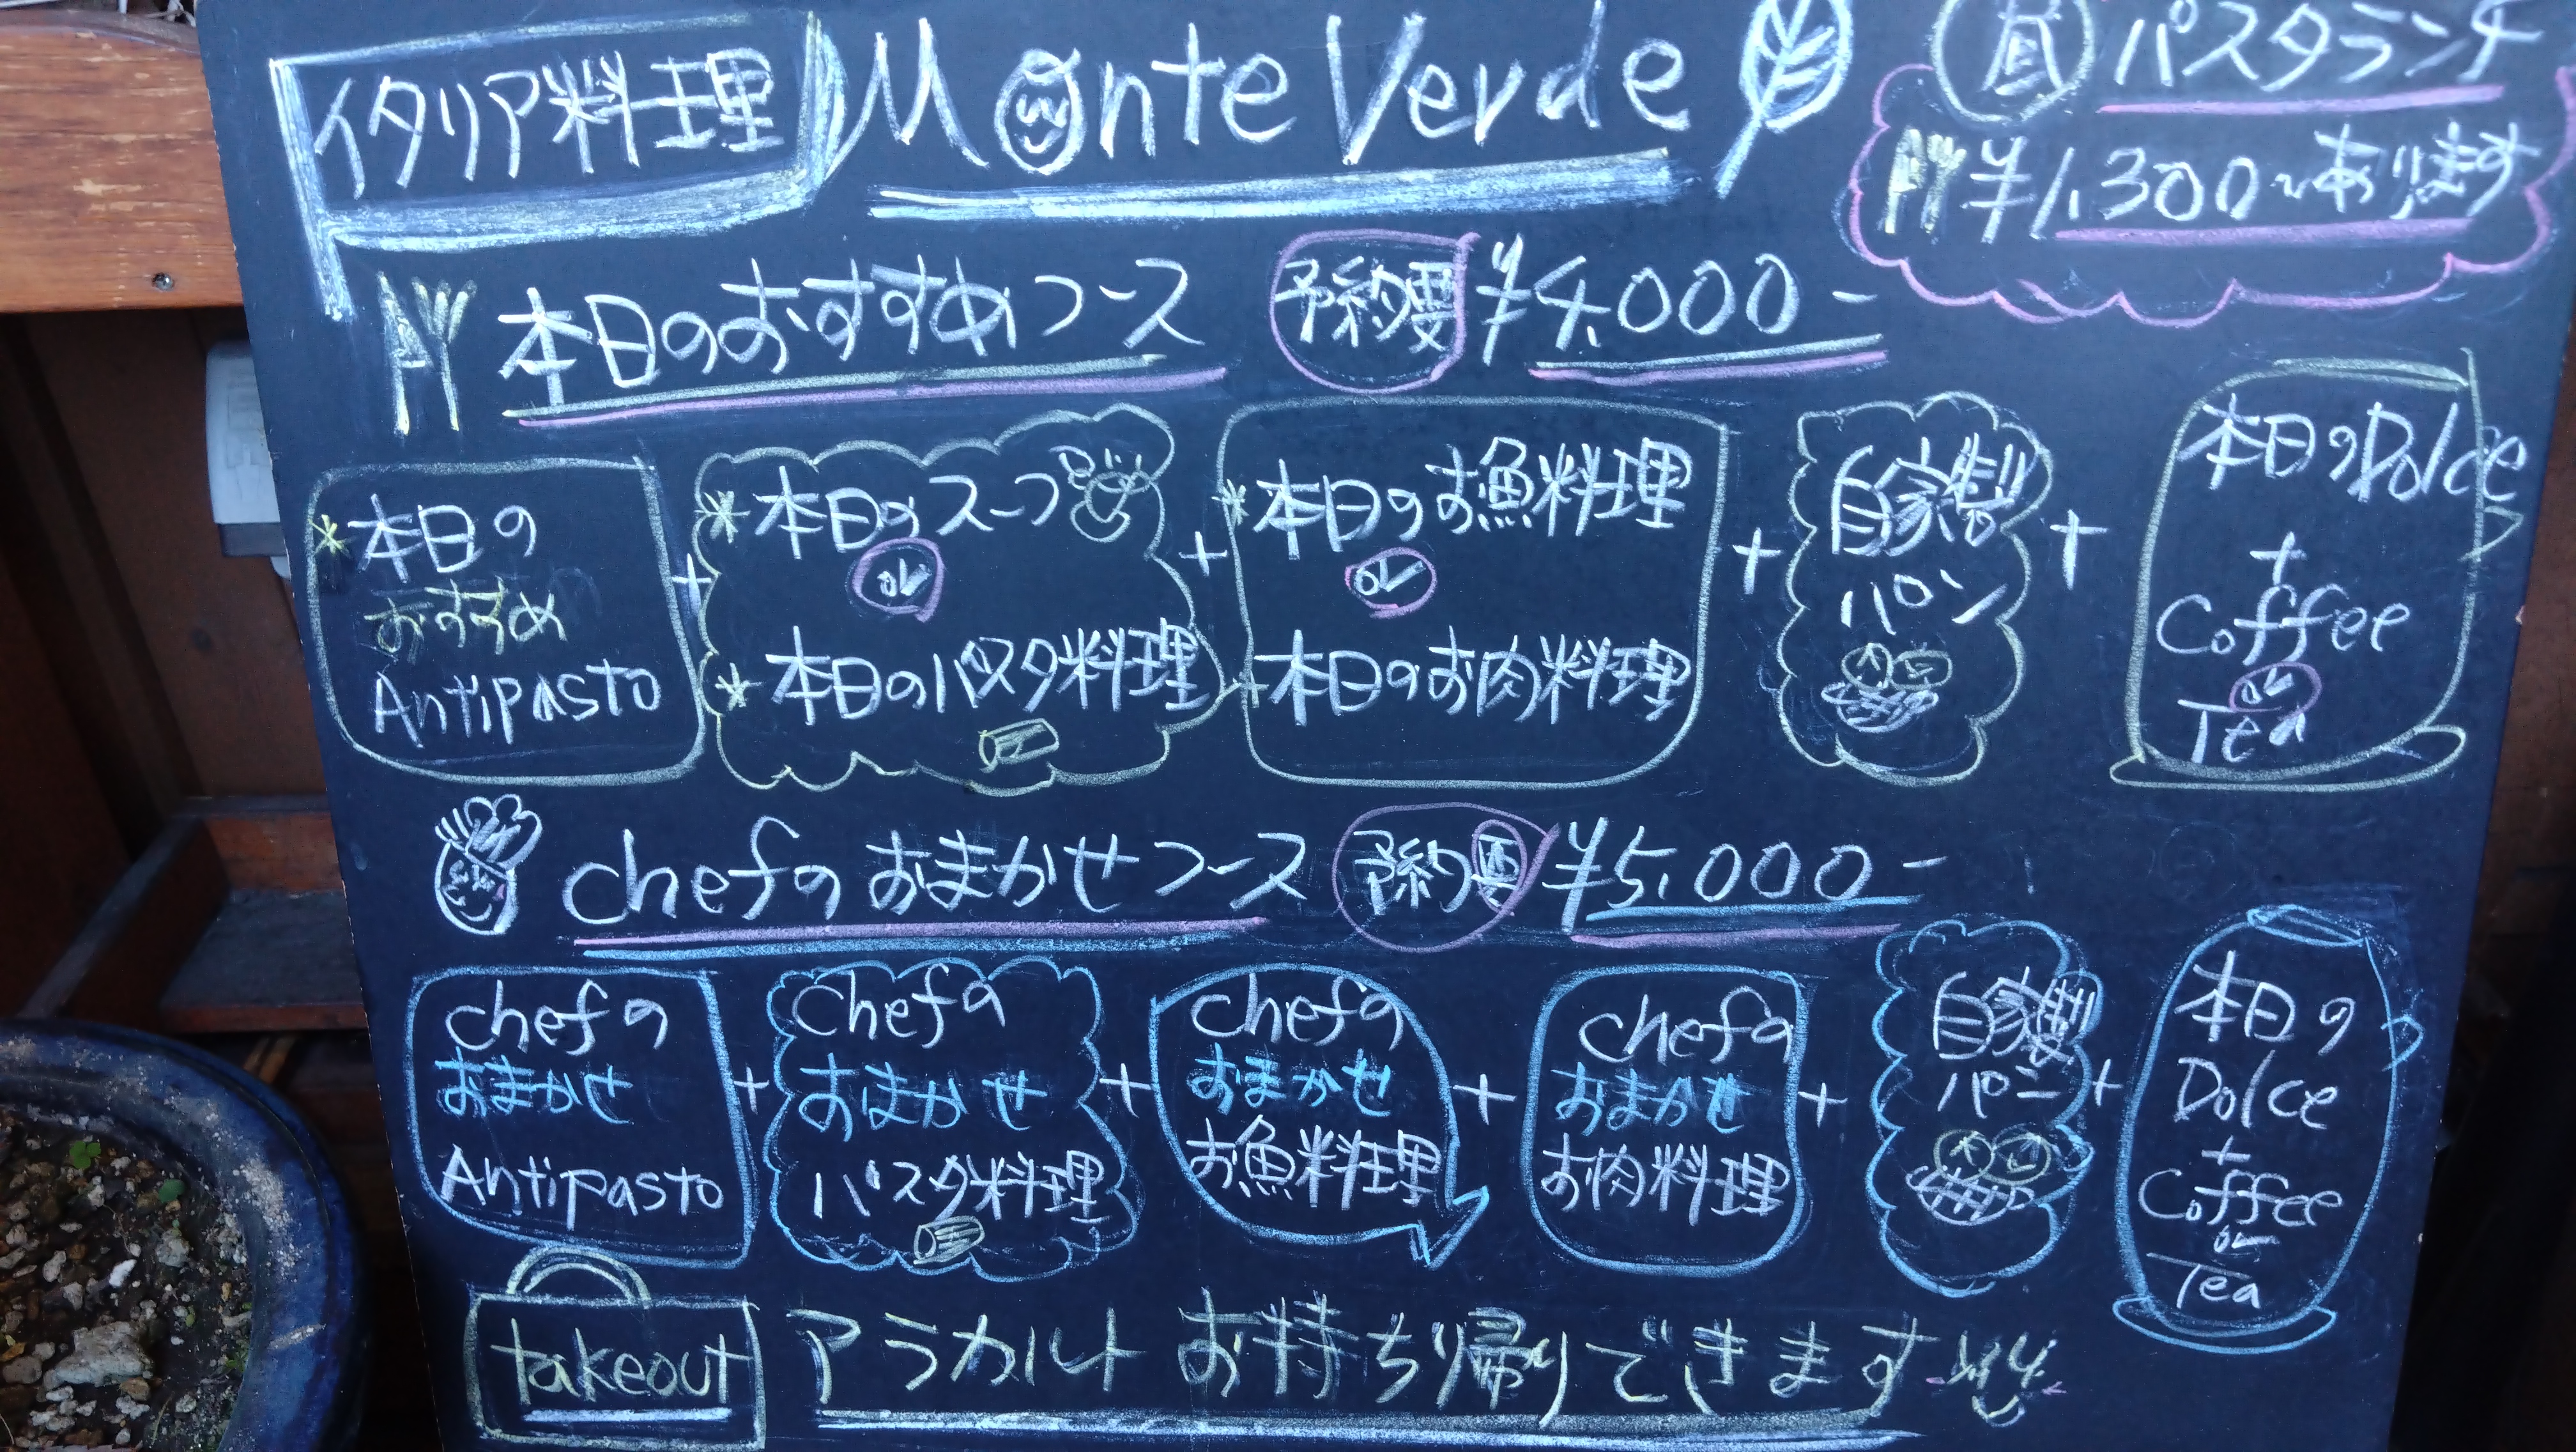 イタリア料理
Monte Verde
昼 パスタランチ
¥1,300〜あります
本日のおすすめコース 予約要 ¥4,000-
*本日の
おすすめ
Antipasto
+
*本日のスープ
or
*本日のパスタ料理
+
*本日のお魚料理
or
*本日のお肉料理
+
自家製
パン
+
本日のDolce
+
Coffee
or
Tea
chefのおまかせコース 予約要 ¥5,000-
chefの
おまかせ
Antipasto
+
chefの
おまかせ
パスタ料理
+
chefの
おまかせ
お魚料理
+
chefの
おまかせ
お肉料理
+
自家製
パン
+
本日の
Dolce
+
Coffee
or
Tea
takeout アラカルト お持ち帰りできます